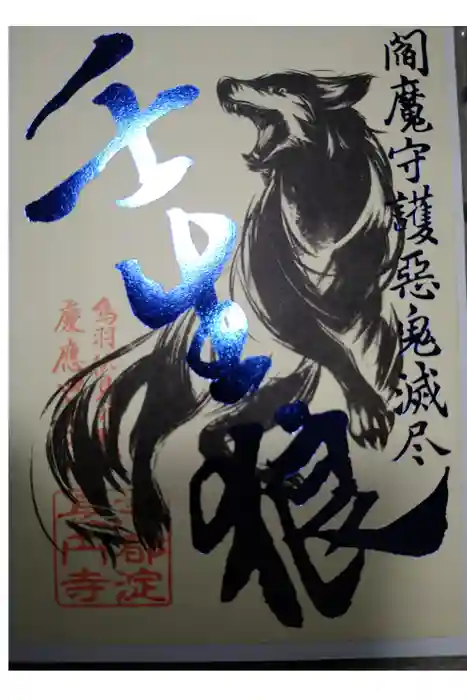 閻魔守護惡鬼滅尽
壬生狼
鳥羽
慶應
都淀
長円寺